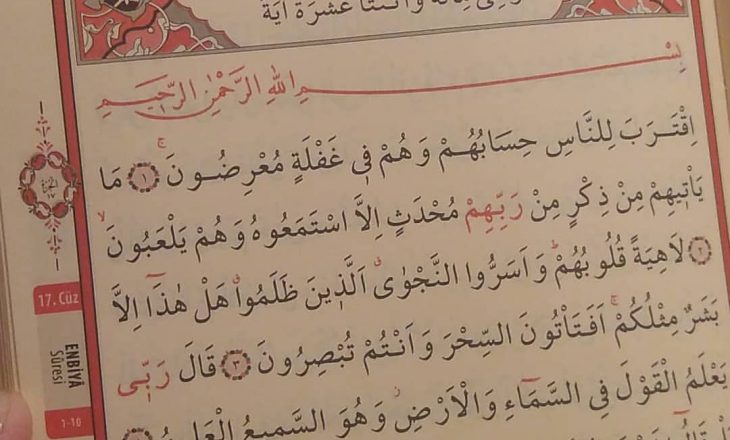 مِائَةٌ وَاثْنَتَا عَشْرَةَ اٰيَةً
بِسْمِ اللّٰهِ الرَّحْمٰنِ الرَّحٖيمِ
اِقْتَرَبَ لِلنَّاسِ حِسَابُهُمْ وَهُمْ فٖي غَفْلَةٍ مُعْرِضُونَۚ ﴿١﴾ مَا
يَأْتٖيهِمْ مِنْ ذِكْرٍ مِنْ رَبِّهِمْ مُحْدَثٍ اِلَّا اسْتَمَعُوهُ وَهُمْ يَلْعَبُونَۙ
﴿٢﴾ لَاهِيَةً قُلُوبُهُمْۜ وَاَسَرُّوا النَّجْوٰىۗ اَلَّذٖينَ ظَلَمُواۗ هَلْ هٰذَٓا اِلَّا
بَشَرٌ مِثْلُكُمْۚ اَفَتَأْتُونَ السِّحْرَ وَاَنْتُمْ تُبْصِرُونَ ﴿٣﴾ قَالَ رَبّٖي
يَعْلَمُ الْقَوْلَ فِي السَّمَٓاءِ وَالْاَرْضِۘ وَهُوَ السَّمٖيعُ الْعَلٖيمُ
17. Cüz
ENBİYÂ
Sûresi
1-10